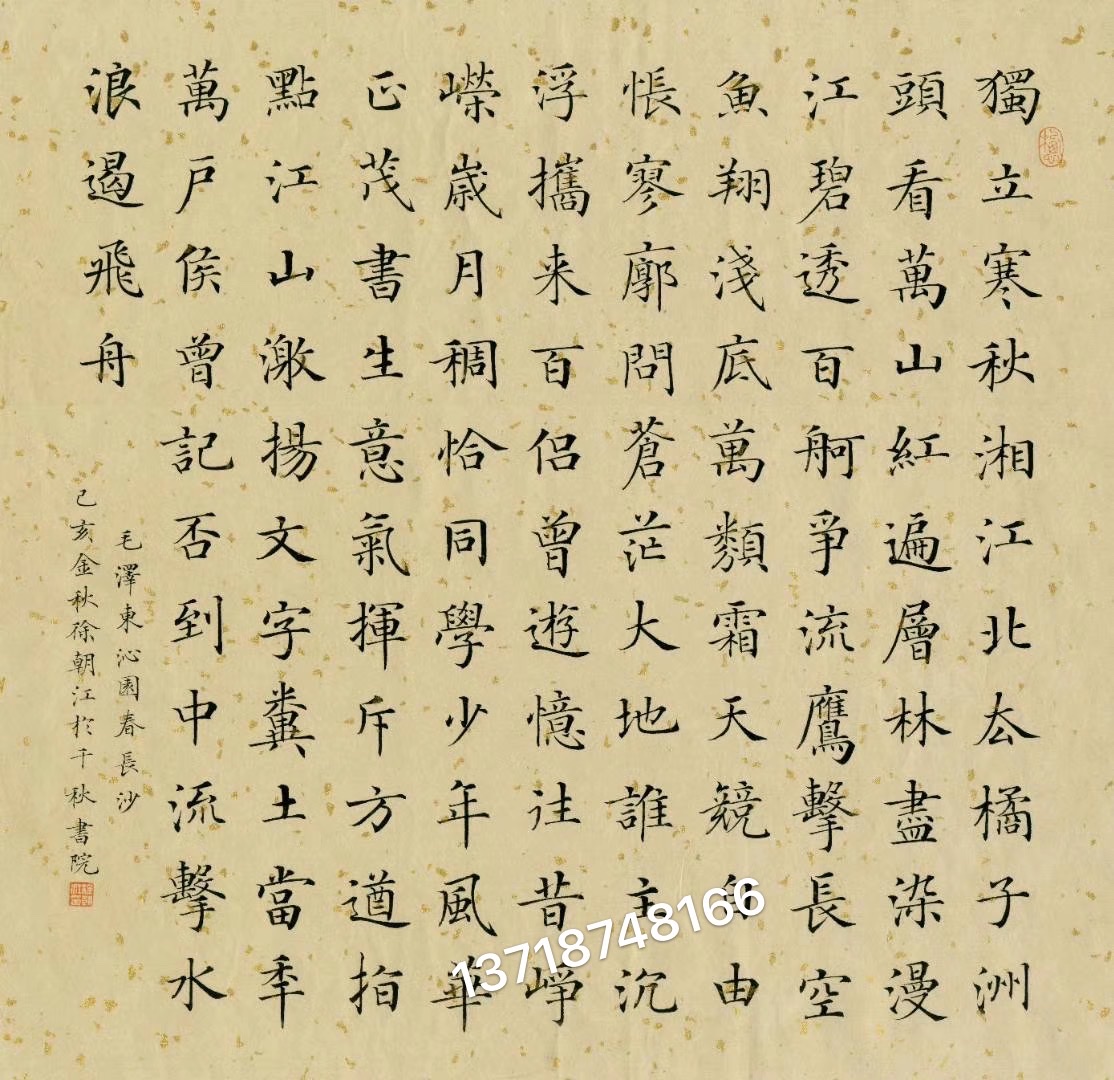 獨立寒秋湘江北去橘子洲
頭看萬山紅遍層林盡染漫
江碧透百舸爭流鷹擊長空
魚翔淺底萬類霜天競自由
悵寥廓問蒼茫大地誰主沉
浮攜来百侣曾遊憶往昔崢
嶸歲月稠恰同學少年風華
正茂書生意氣揮斥方遒指
點江山激揚文字糞土當年
萬戶侯曾記否到中流擊水
浪遏飛舟
毛澤東沁園春長沙
己亥金秋徐朝江於千秋書院
13718748166